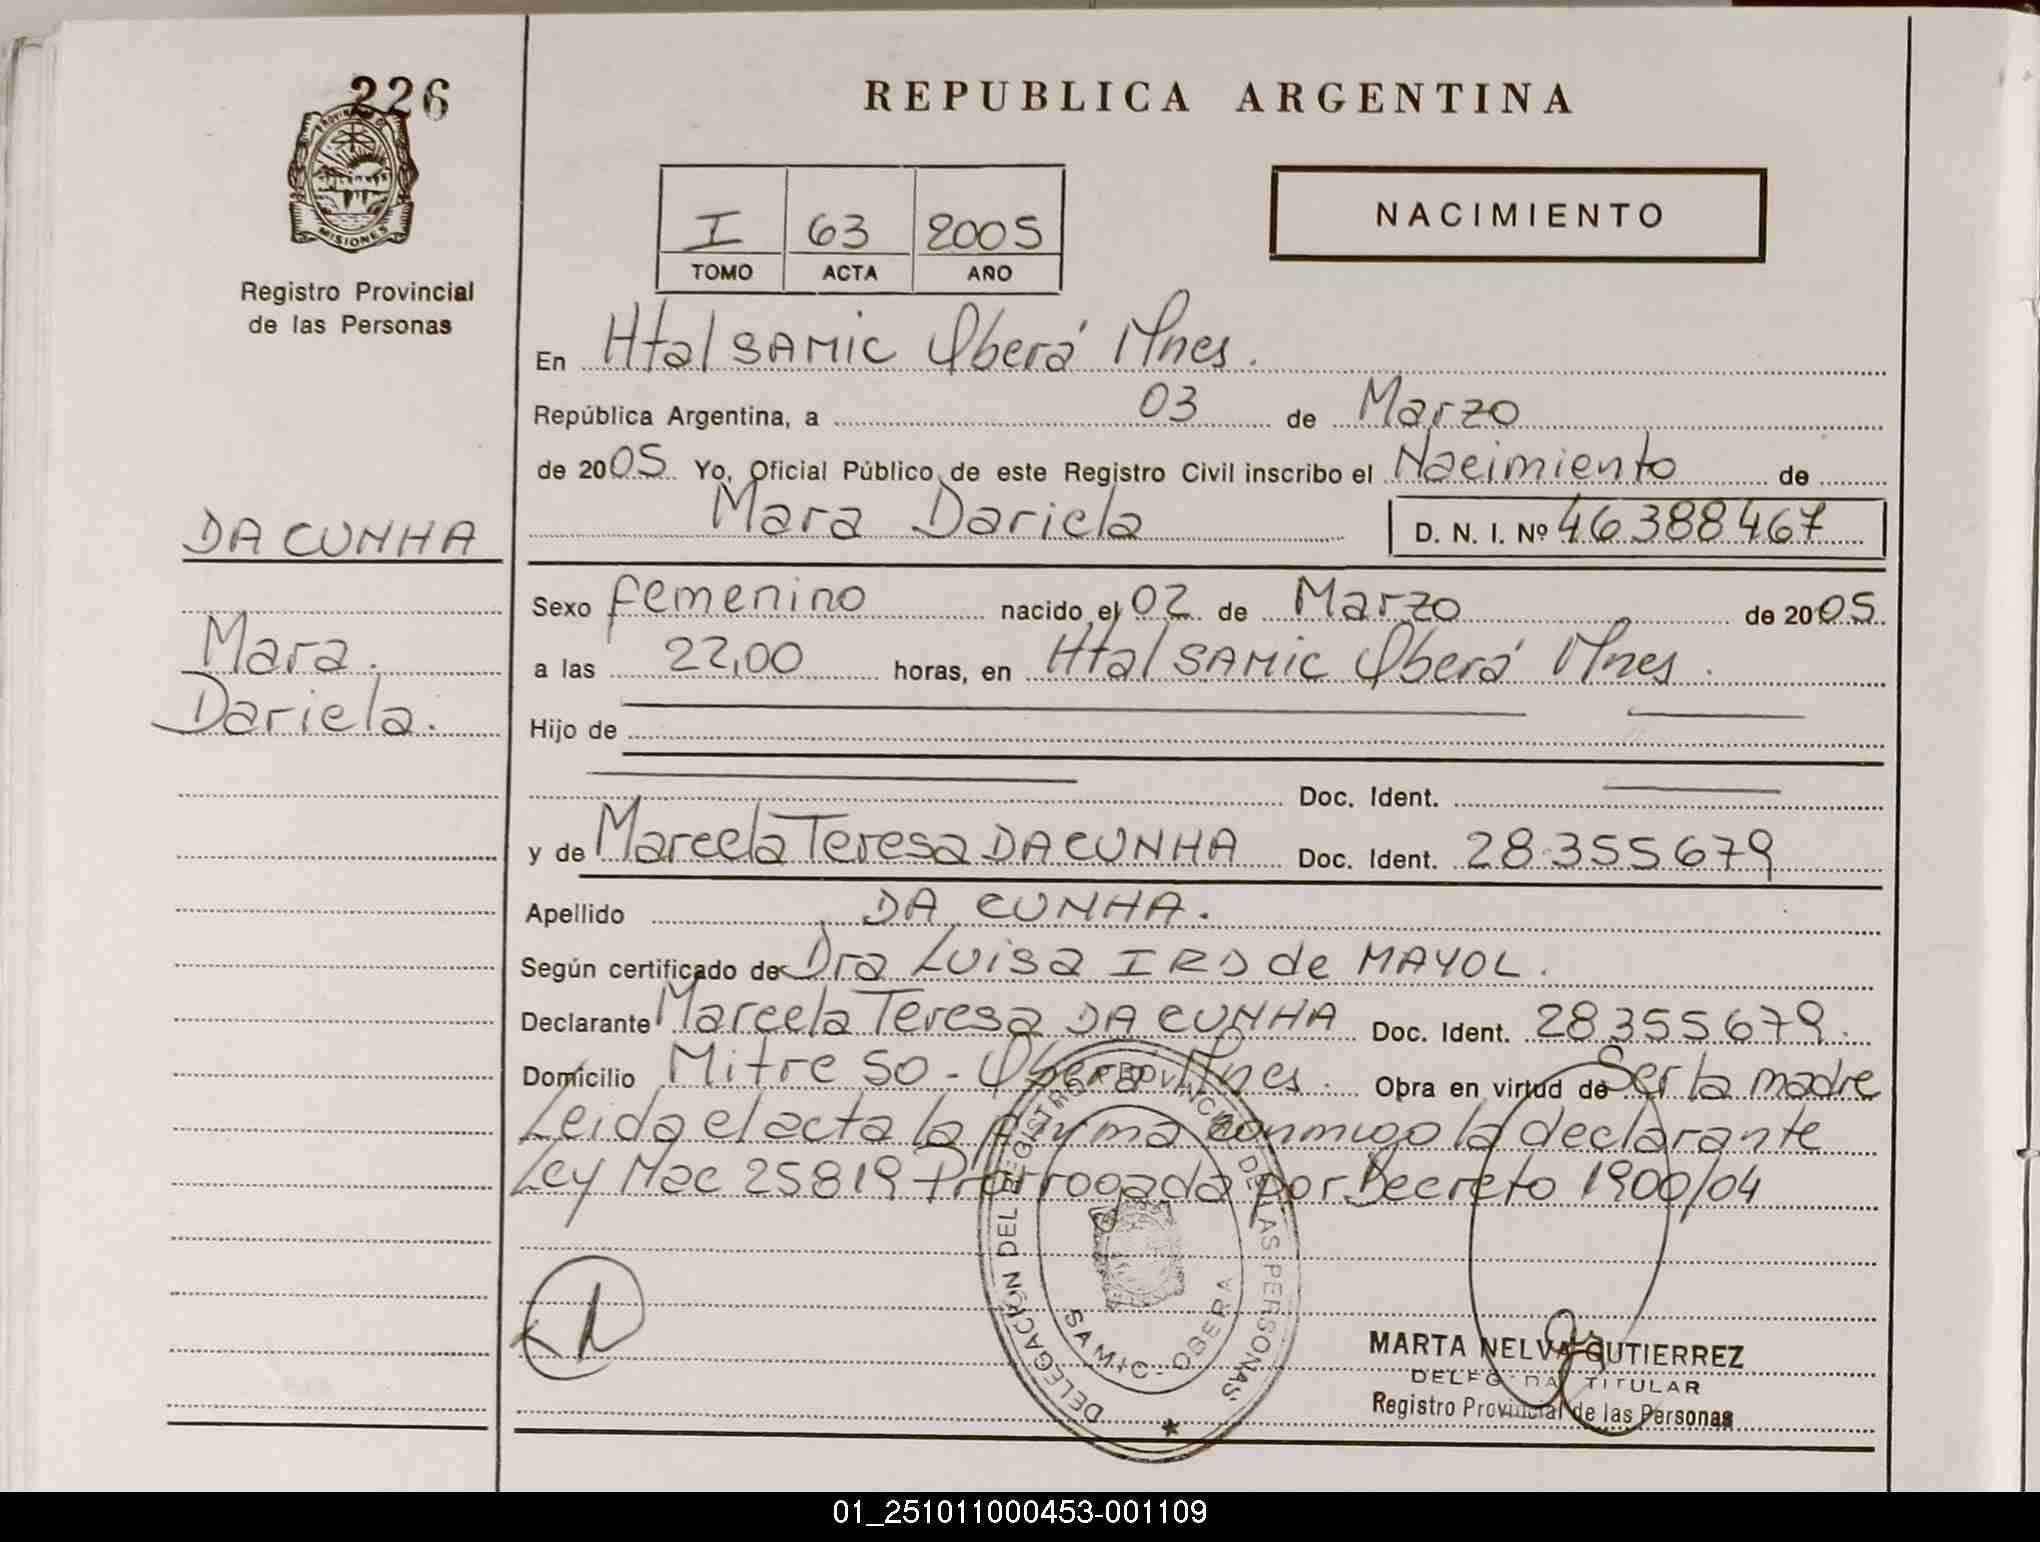 226
PROVINCIA DE
MISIONES
Registro Provincial
de las Personas
DA CUNHA
Mara.
Dariela.
REPUBLICA ARGENTINA
I 63 2005
TOMO ACTA AÑO
NACIMIENTO
En Htal SAMIC Oberá Mnes.
República Argentina, a 03 de Marzo
de 2005 Yo, Oficial Público de este Registro Civil inscribo el Nacimiento de
Mara Dariela D. N. I. Nº 46388467
Sexo femenino nacido el 02 de Marzo de 2005
a las 22,00 horas, en Htal SAMIC Oberá Mnes.
Hijo de
Doc. Ident.
y de Marcela Teresa DA CUNHA Doc. Ident. 28.355679
Apellido DA CUNHA.
Según certificado de Dra Luisa de MAYOL.
Declarante Marcela Teresa DA CUNHA Doc. Ident. 28355679.
Domicilio Mitre 50 - Oberá Mnes. Obra en virtud de Ser la madre
Leida el acta la firma conmigo la declarante
Ley Nac 25819 Prorrogada por Decreto 1900/04
DELEGACIÓN DEL REGISTRO PROVINCIAL DE LAS PERSONAS
SAMIC - OBERA
MARTA NELVA GUTIERREZ
DELEGADA TITULAR
Registro Provincial de las Personas
01_251011000453-001109